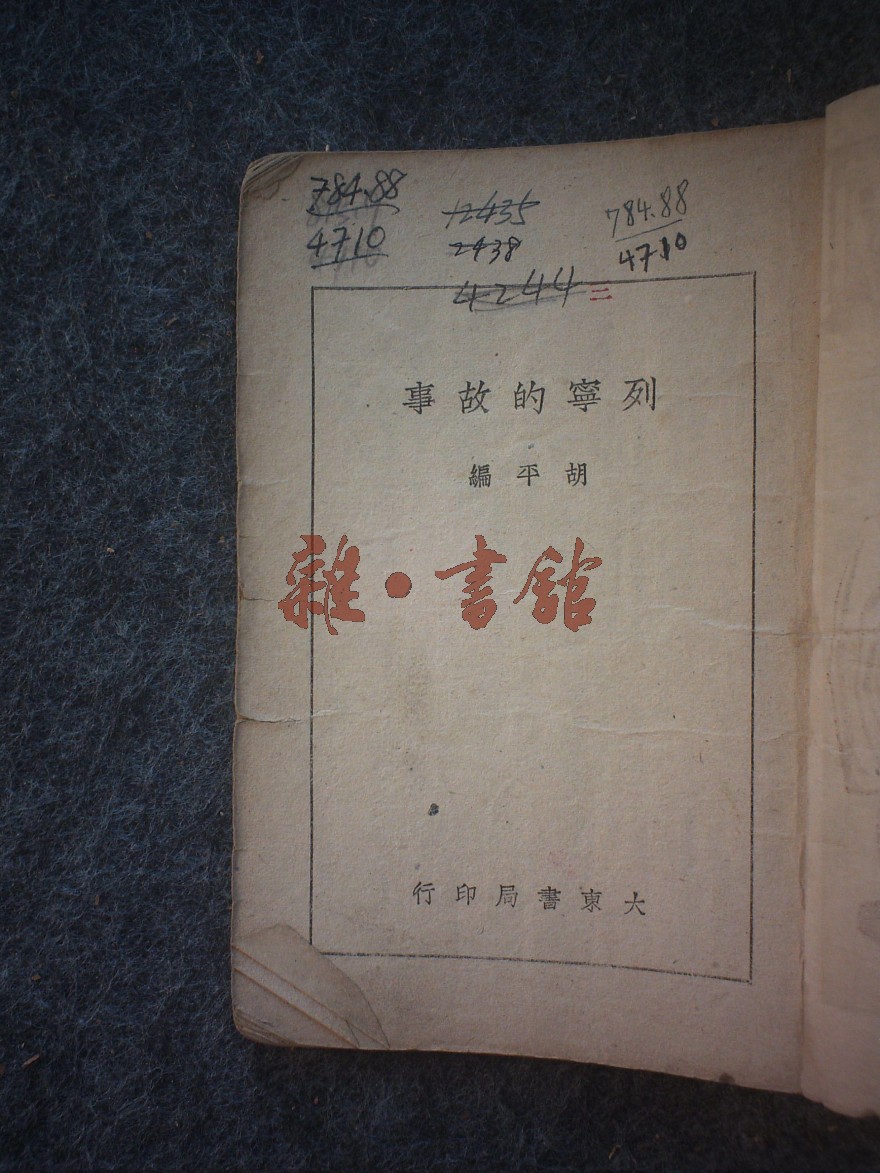 784.88
4710
12435
2438
4244
784.88
4710
二
列寧的故事
胡平編
雜·書館
大東書局印行